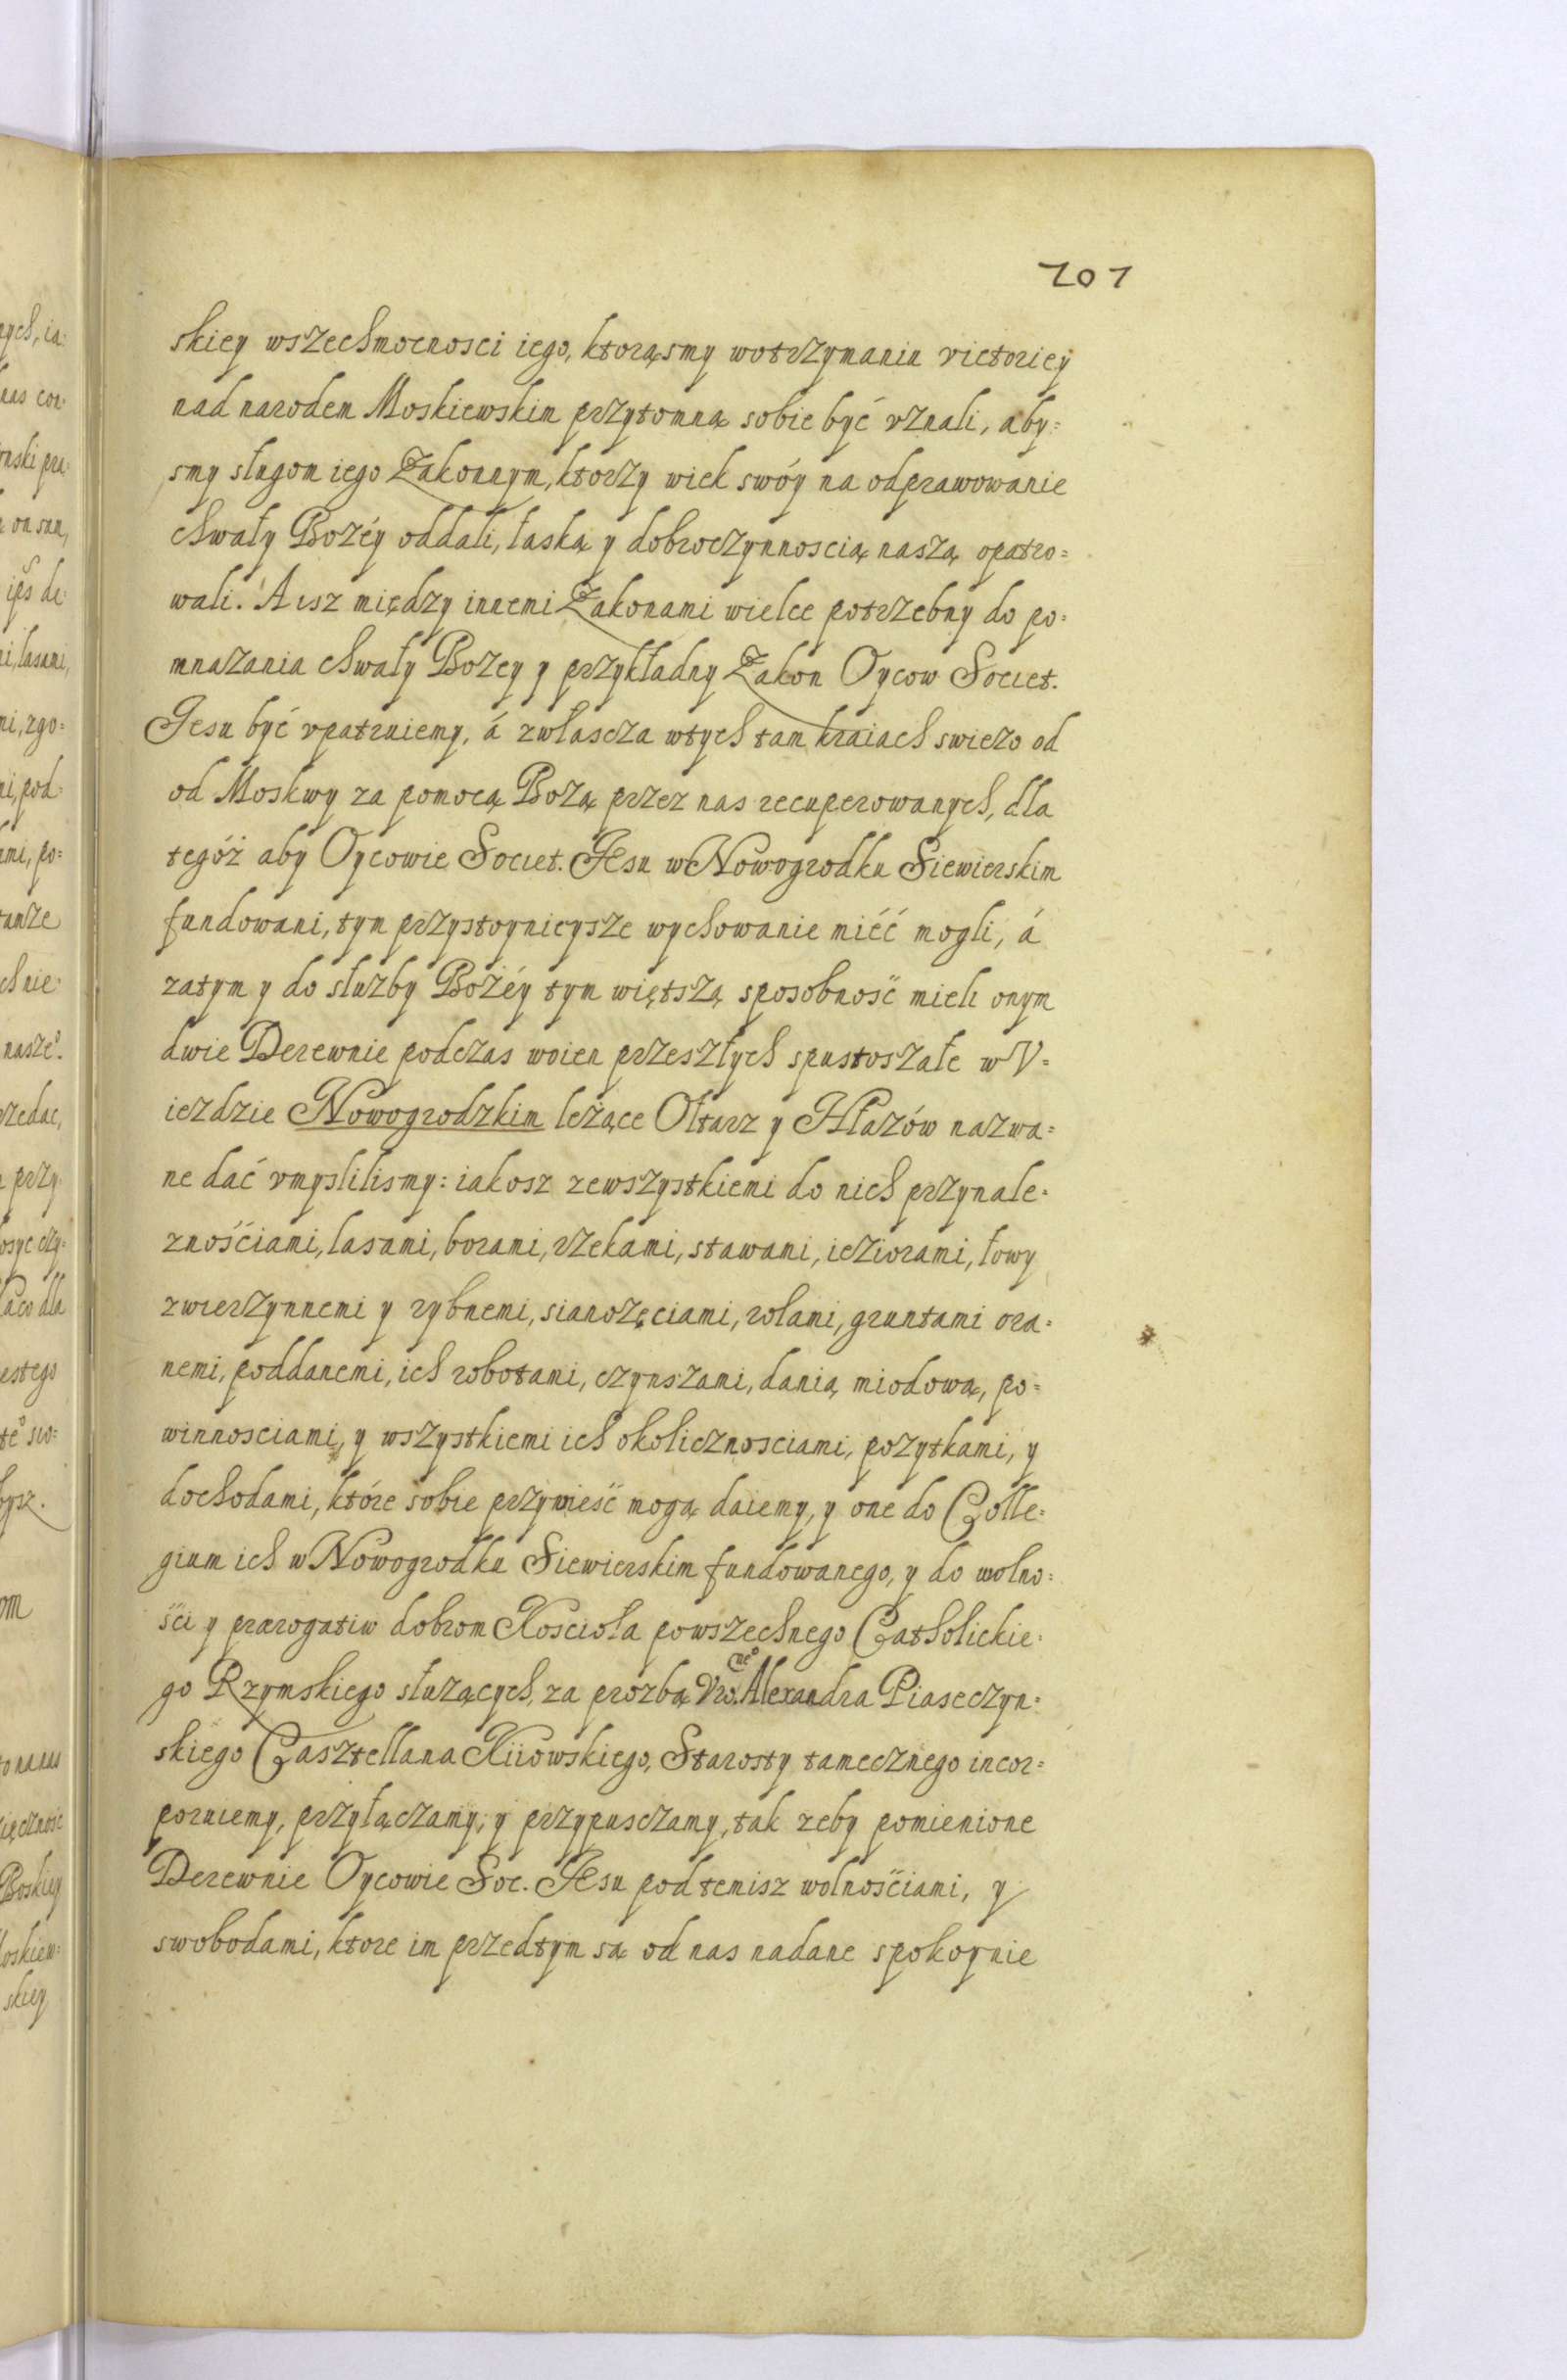 701
skiey wszechmocnosci iego, ktorąsmy wotrzymaniu victoriey
nad narodem Moskiewskim przytomną sobie być vznali, aby=
smy sługom iego Zakonnym, ktorzy wiek swóy na odprawowanie
chwały Bożéy oddali, łaską y dobroczynnoscią naszą opatro=
wali. A isz między innemi Zakonami wielce potrzebny do po=
mnazania chwały Bozey y przykładny Zakon Oycow Societ.
Jesu być vpatruiemy, á zwłascza wtych tam kraiach swiezo od
od Moskwy za pomocą Bożą przez nas recuperowanych, dla
tegóż aby Oycowie Societ. Jesu w Nowogrodku Siewierskim
fundowani, tym przystoynieysze wychowanie miéć mogli, á
zatym y do słuzby Bożéy tym większą sposobność mieli onym
dwie Derewnie podczas woien przeszłych spustoszałe w V=
iezdzie Nowogrodzkim leżące Ołtarz y Hłazów nazwa=
ne dać vmyslilismy: iakosz zewszystkiemi do nich przynale=
znośćiami, lasami, borami, rzekami, stawami, ieziorami, łowy
zwierzynnemi y rybnemi, sianozęciami, rolami, gruntami ora=
nemi, poddanemi, ich robotami, czynszami, danią miodową, po=
winnosciami, y wszystkiemi ich okolicznosciami, pozytkami, y
dochodami, któré sobie przynieść mogą daiemy, y one do Colle=
gium ich w Nowogrodku Siewierskim fundowanego, y do wolno=
ści y prærogatiw dobrom Kosciola powszechnego Catholickie=
go Rzymskiego służących, za prozbą Vr. Alexandra Piaseczyn=
skiego Casztellana Kiiowskiego, Starosty tamecznego incor=
poruiemy, przyłączamy, y przypusczamy, tak zeby pomienione
Derewnie Oycowie Soc. Jesu pod temisz wolnościami, y
swobodami, ktore im przedtym są od nas nadane spokoynie